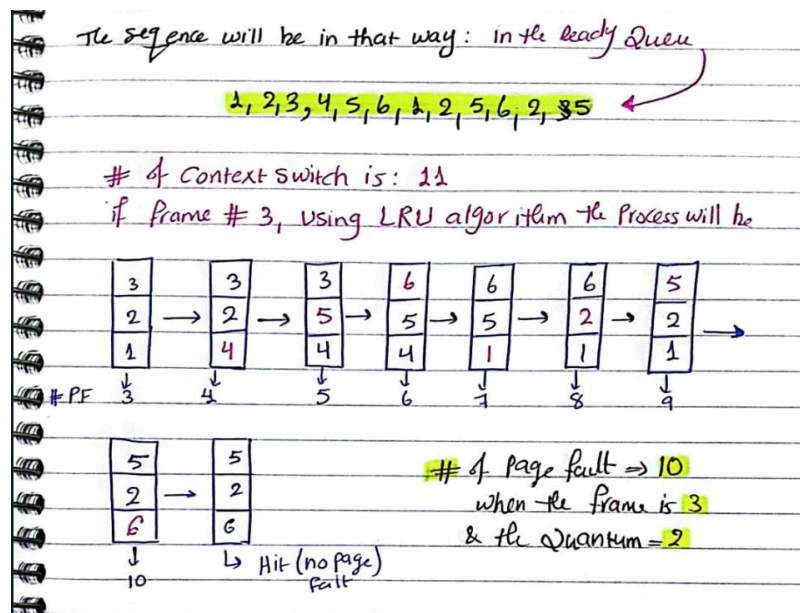 The seqence will be in that way: in the Ready Queu
1, 2, 3, 4, 5, 6, 1, 2, 5, 6, 2, 5
# of Context switch is: 11
if frame # 3, using LRU algorithm the Process will be
3 3 3 6 6 6 5
2 → 2 → 5 → 5 → 5 → 2 → 2 →
1 4 4 4 1 1 1
#PF 3 4 5 6 7 8 9
5 5
2 → 2
6 6
10 ↳ Hit (no page falt)
# of page fault ⇒ 10
when the frame is 3
& the Quantum = 2